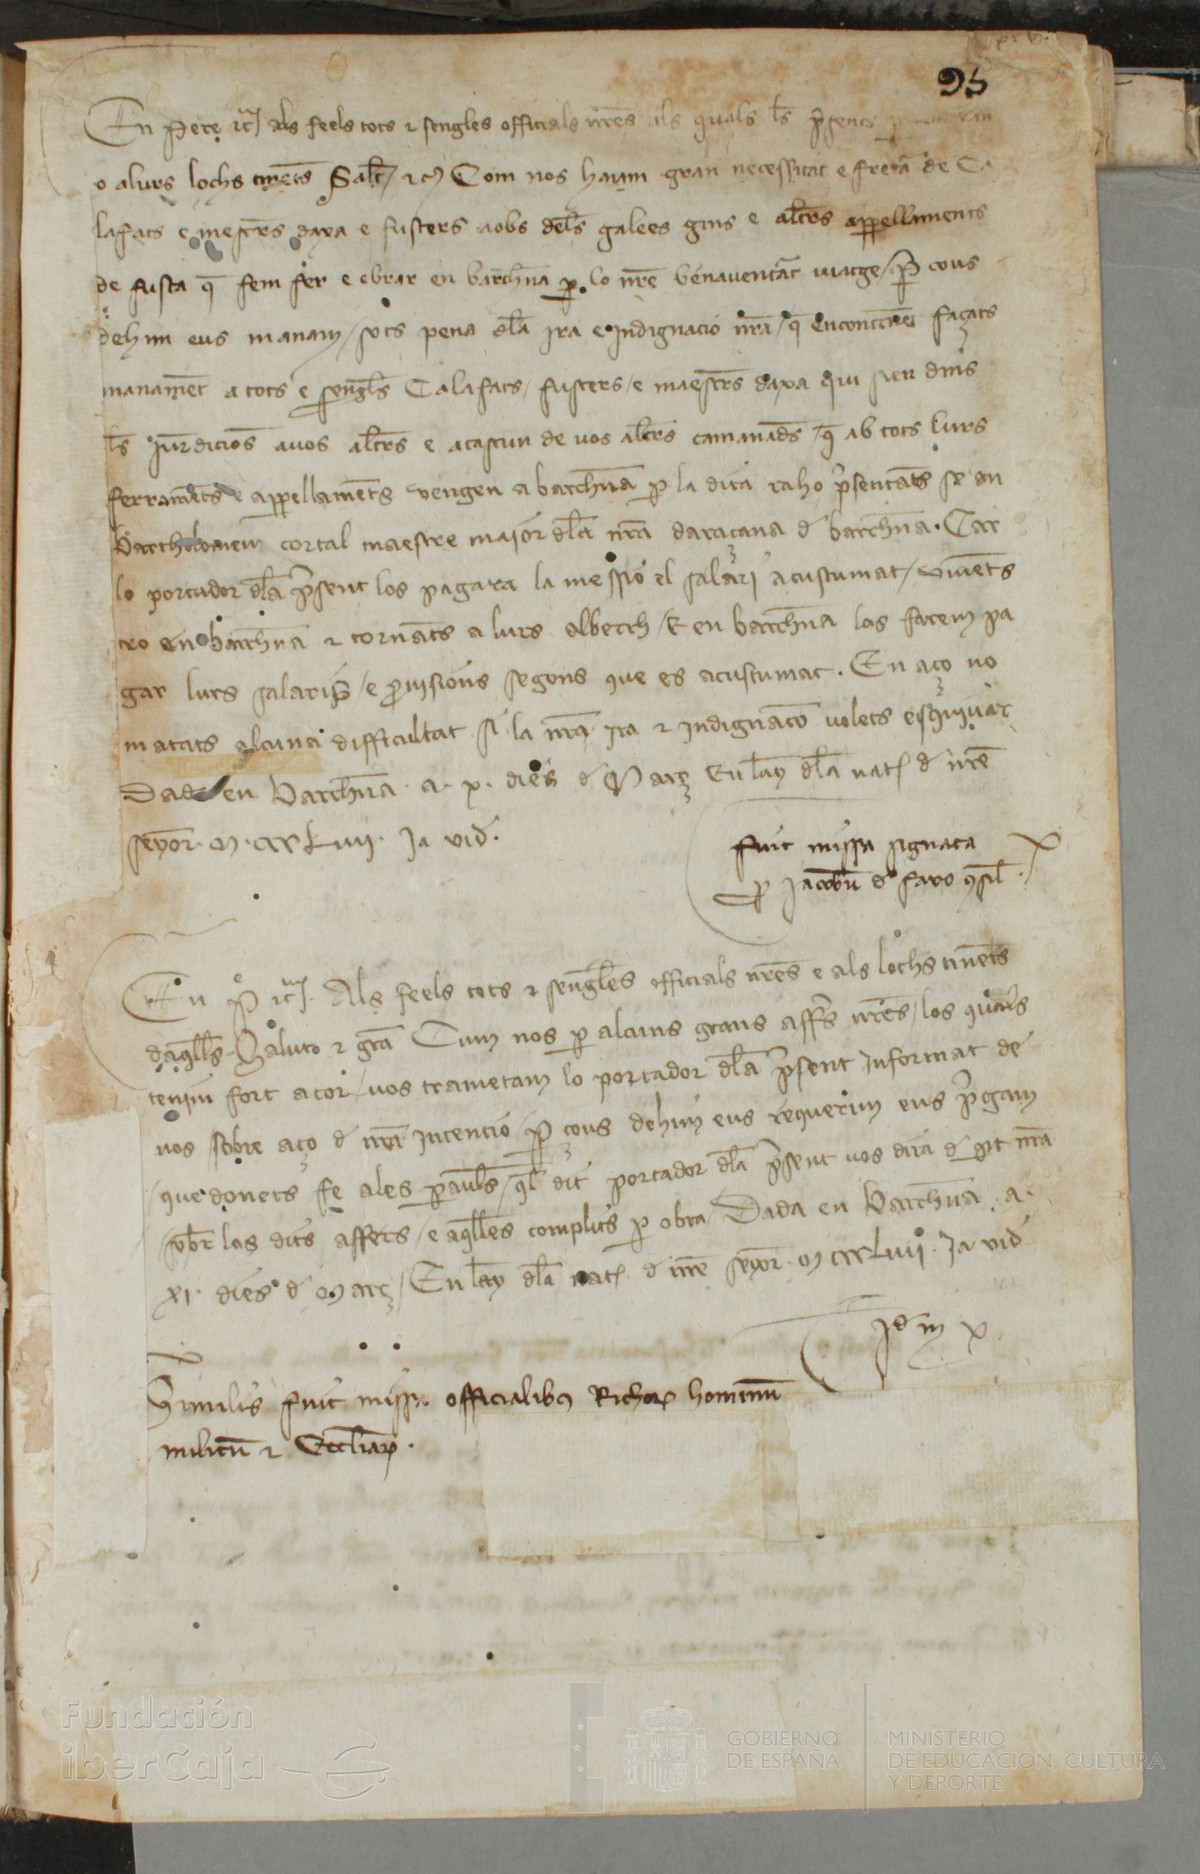 95
En Pere etc. Als feels tots e sengles officials nres als quals ls pnsents
o a lurs lochs tinents Salt etc Com nos haiam gran necessitat e fretura de Ca
lafats e mestres daxa e fusters a obs dels galees gins e altres appellaments
de fusta q fem fer e obrar en Barchna p lo nre benaventat viatge p ço us
dehim eus manam sots pena dla ira e indignacio nra q encontinent façats
manament a tots e sengls Calafats fusters e maestrs daxa qui sien dins
ls jurdicions a vos altrs e a cascun de vos altrs comanads q ab tots lurs
ferraments e appellaments vengen a barchna p la dita raho psentats se an
Bartholomeu cortal maestre maior dla nra daraçana d barchna. Car
lo portador dla psent los pagara la messio el salari acustumat vinents
tro en barchna e tornats a lurs alberch E en barchna los farem pa
gar lurs salaris e pvisions segons que es acustumat. En aço no
metats alcuna difficultat si la nra ira e indignacio volets esquivar
Dada en Barchna a x dies d Març En lay dla nat d nre
senyor M CCC L VII Ja vid
fuit missa signata
p Jacobu d faro qsil
En P etc. Als feels tots e sengles officials nres e als lochs tinents
daqlls Salut e gra Cum nos p alcuns grans affers nres los quals
tenim fort a cor vos trametam lo portador dla psent informat de
nos sobre aço d nra intencio p ço us dehim eus requerim eus pgam
que donets fe a les paauls ql dit portador dla psent vos dira d pt nra
sobr los dits affers e aqlles complits p obra Dada en Barchna a
XI dies d Març En lay dla nat d nre senyor M CCC L VII Ja vid
Id m
Similis fuit missa officialibus Richor hominum
militum e Eccliar
Fundación
iberCaja
GOBIERNO
DE ESPAÑA
MINISTERIO
DE EDUCACIÓN, CULTURA
Y DEPORTE